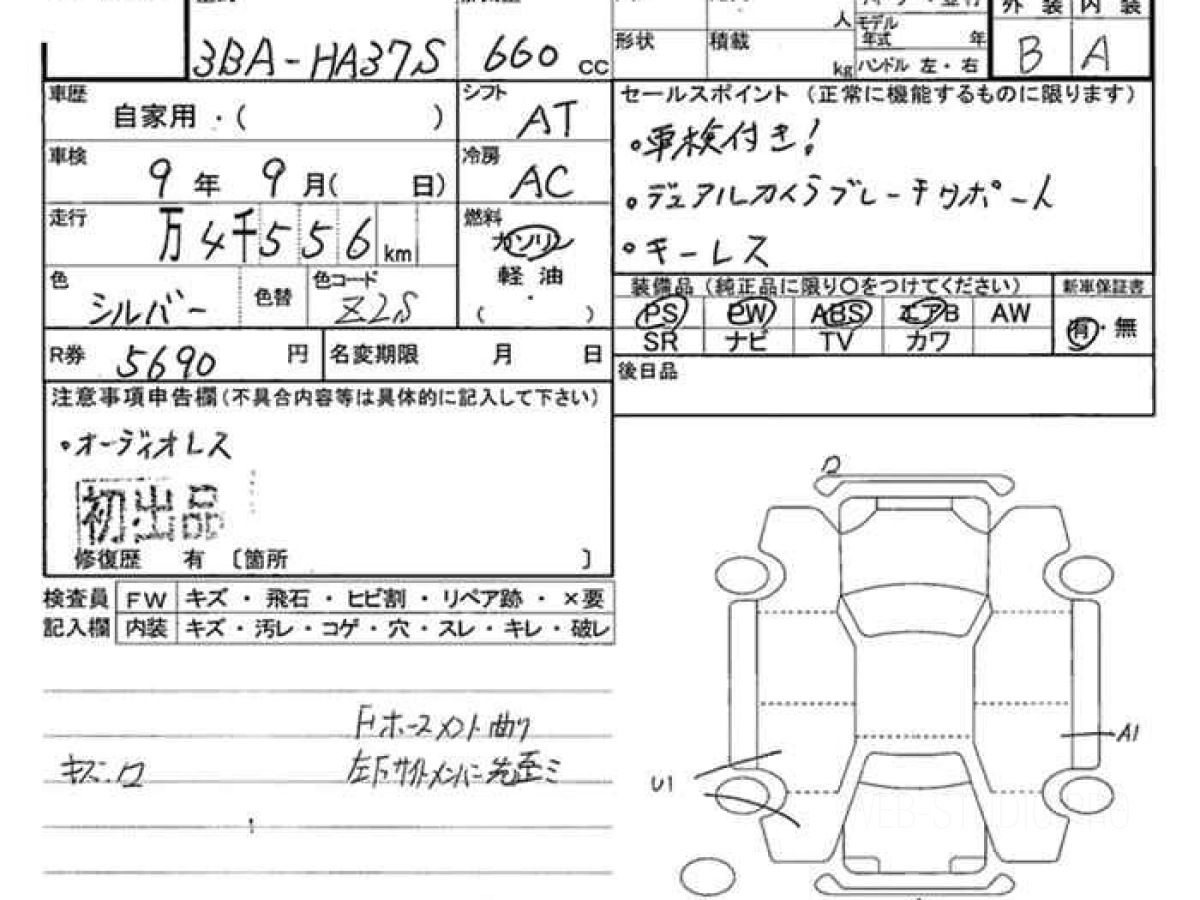 3BA-HA37S 660 cc
人 モデル年式 年
形状 積載 kg ハンドル 左・右
外装 内装
B A
車歴 自家用・( )
シフト AT
車検 9年 9月( 日)
冷房 AC
走行 万4千556km
燃料 ガソリン
軽油
( )
色 シルバー 色替 色コード Z2S
R券 5690 円 名変期限 月 日
セールスポイント (正常に機能するものに限ります)
・車検付き!
・デュアルカメラブレーキサポート
・キーレス
装備品(純正品に限り〇をつけてください) 新車保証書
PS PW ABS エアB AW
SR ナビ TV カワ
有・無
後日品
注意事項申告欄(不具合内容等は具体的に記入して下さい)
・オーディオレス
初出品
修復歴 有 〔箇所 〕
検査員 FW キズ・飛石・ヒビ割・リペア跡・×要
記入欄 内装 キズ・汚レ・コゲ・穴・スレ・キレ・破レ
キズ.ワ
左Fサイドメンバー先歪ミ
ワ
A1
U1
WEB-STUDIO.PRO